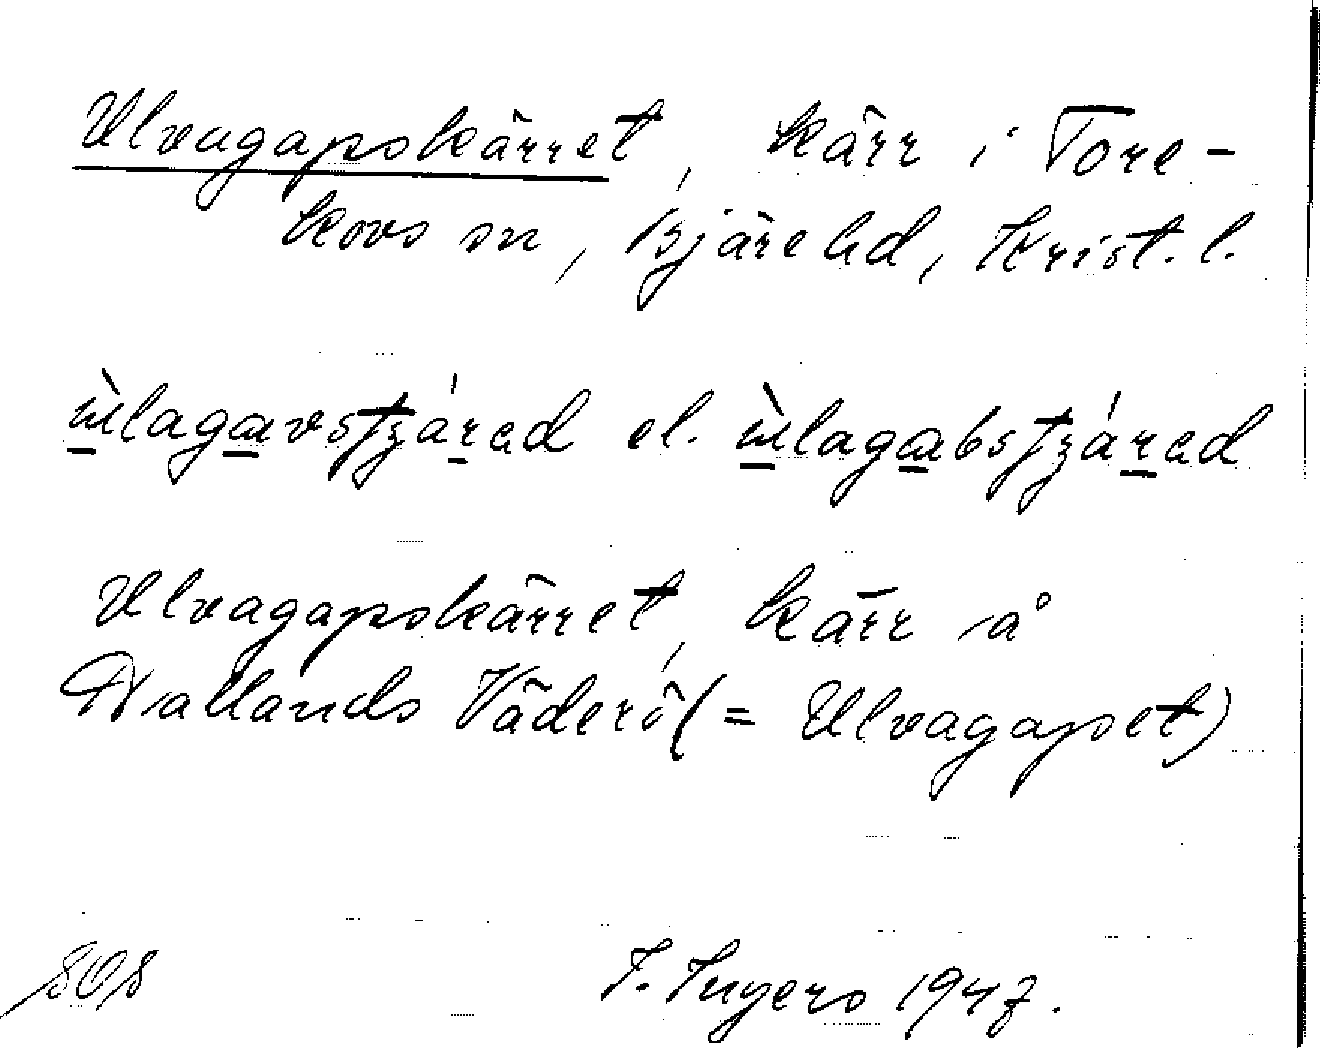 Ulvagapskärret, kärr i Tore-
kovs sn, Bjäre hd, Krist. l.
ùlagavstʒárad el. ùlagabstʒárad
Ulvagapskärret, kärr å
Hallands Väderö (= Ulvagapet)
808
I. Ingers 1947.